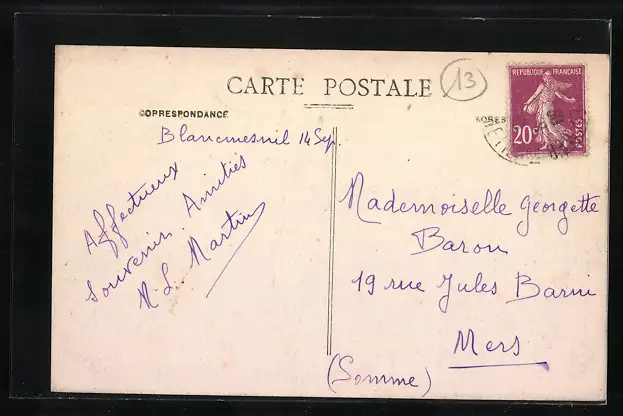 CARTE POSTALE
13
REPUBLIQUE FRANÇAISE
20c
POSTES
CORRESPONDANCE
Blancmesnil 14 Sep.
Affectueux
souvenirs. Amitiés
M L. Martin
Mademoiselle Georgette
Baron
19 rue Jules Barni
Mers
(Somme)